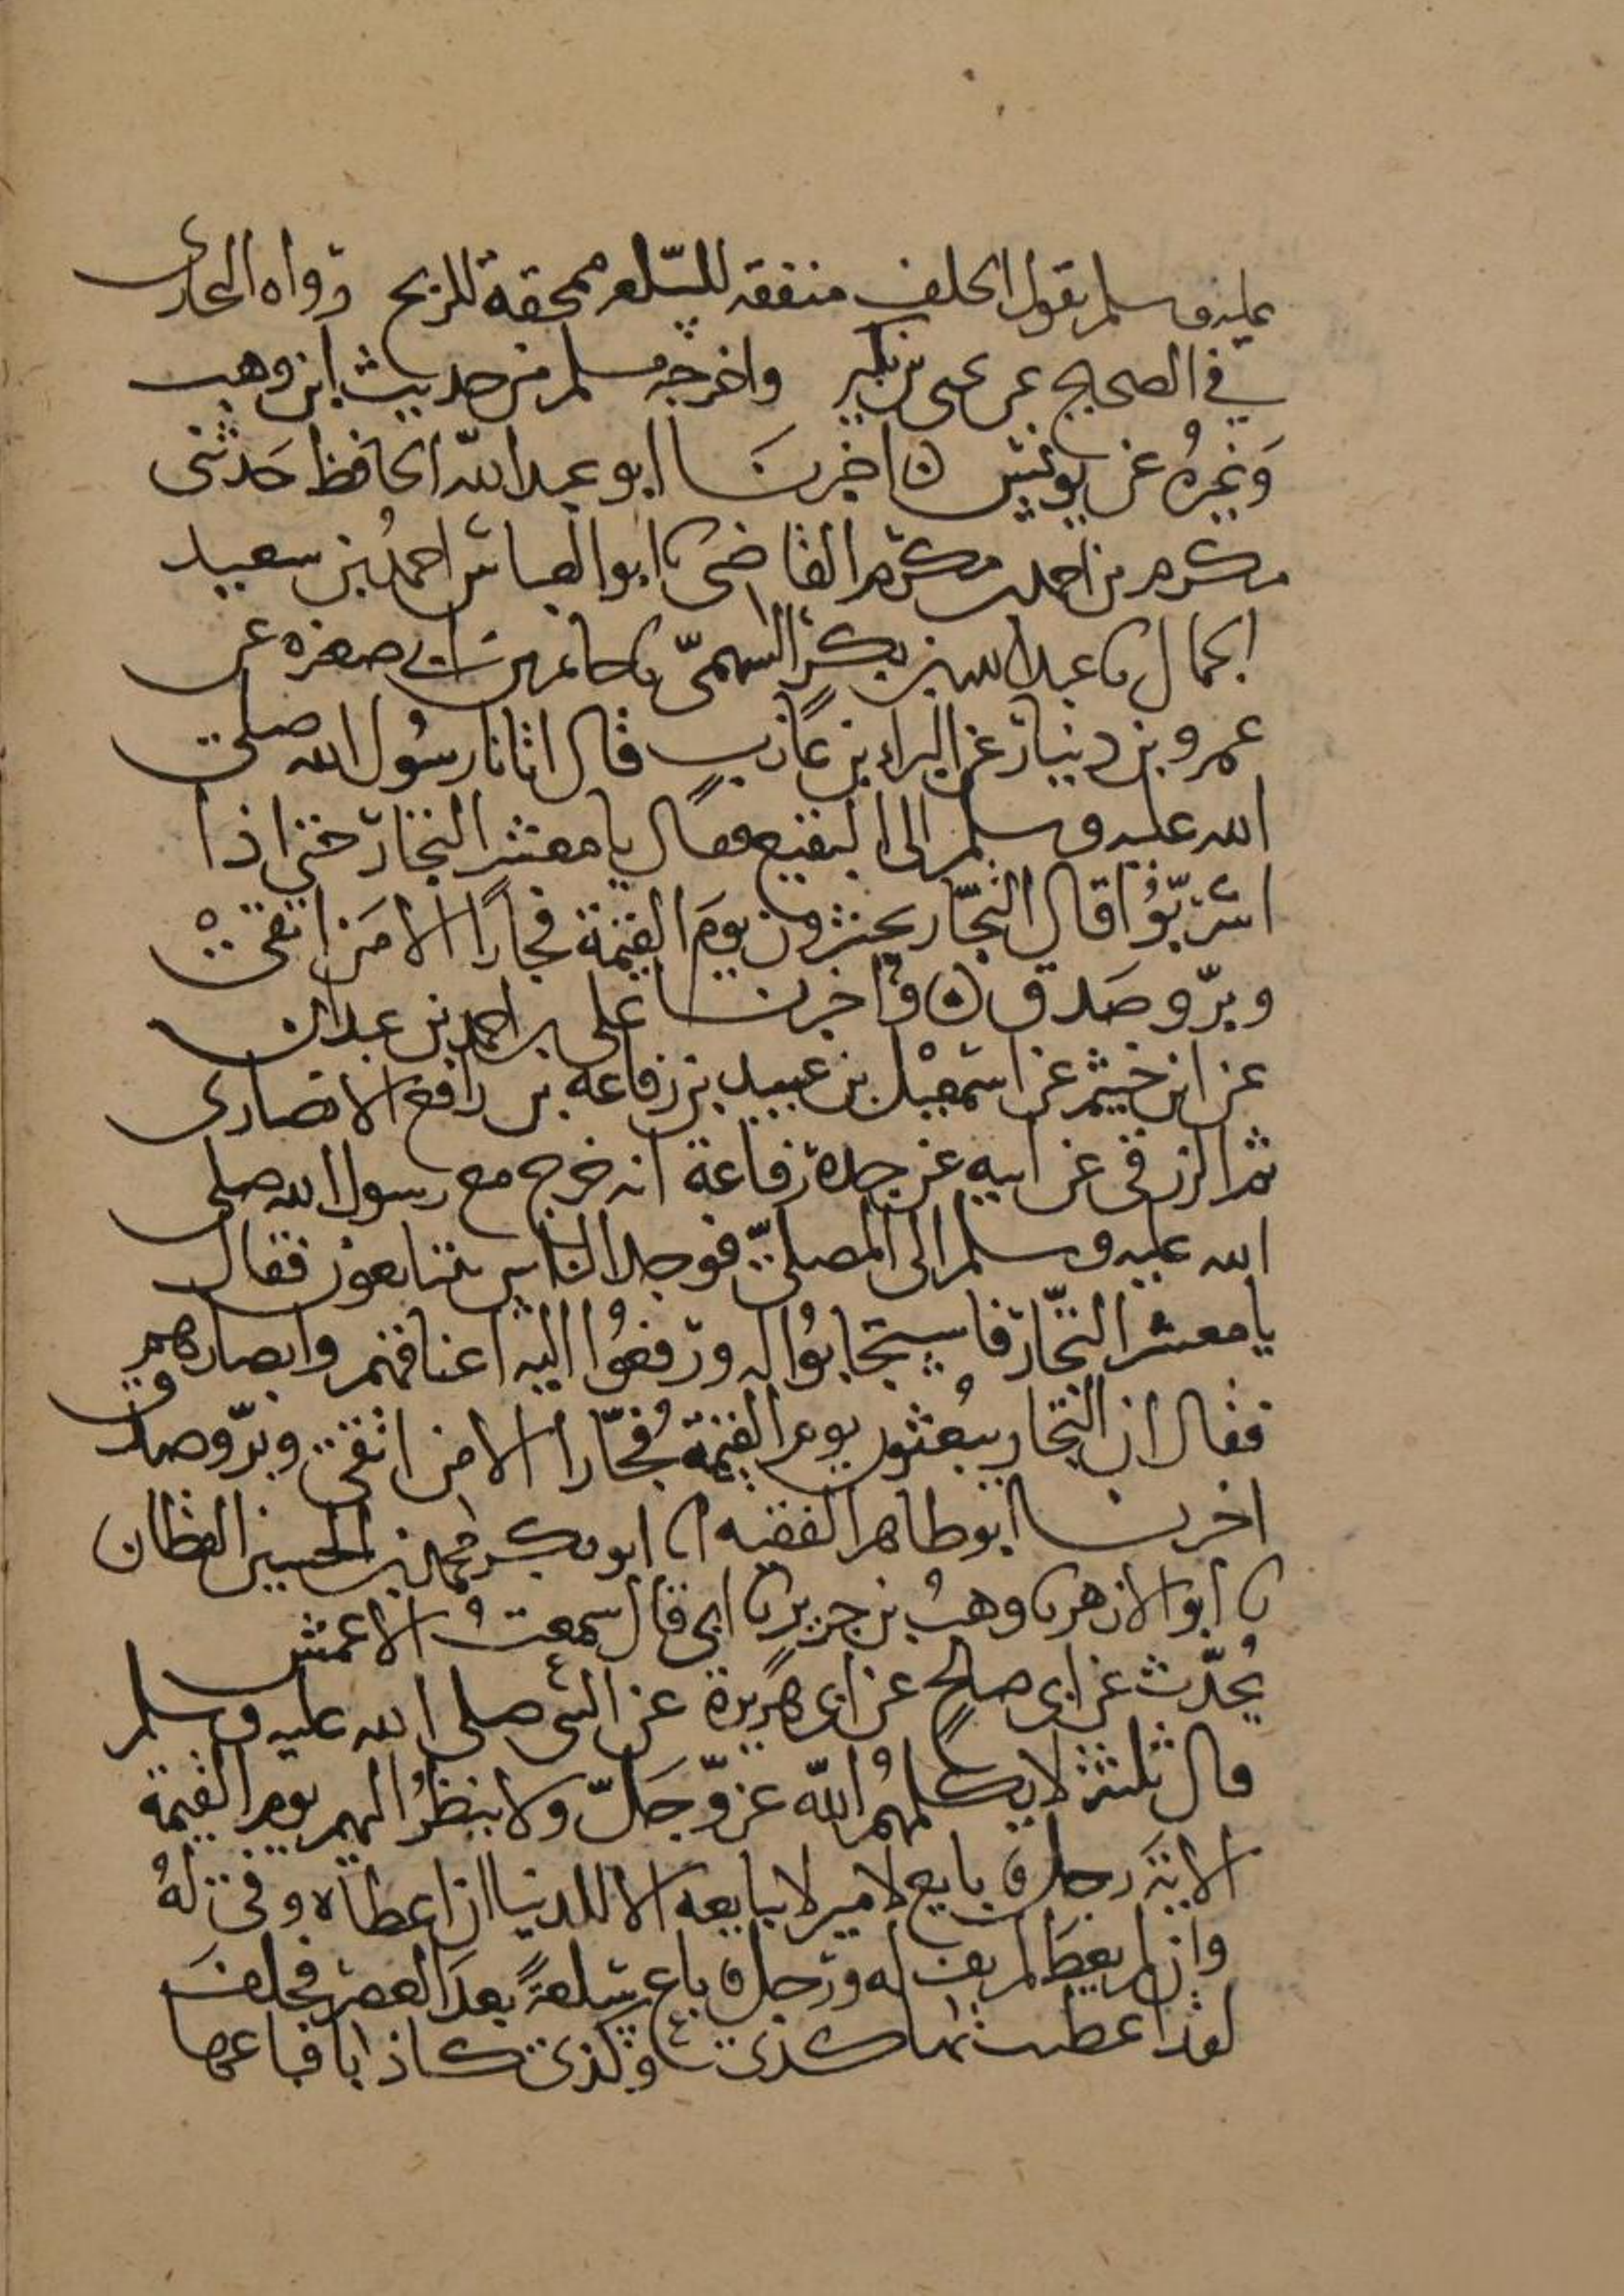 عليه وسلم يقول الحلف منفقه للسّلعه ممحقة للربح رواه البخارى
في الصحيح عن يحيى بن بكير واخرجه مسلم من حديث ابن وهب
وَغيرهُ عن يونس اخبرنَا ابو عبد اللّه الحافظ حَدثنى
مكرم بن احمد بن مكرم القاضى نا ابو العباس احمدُ بن سعيد
الجمال نا عبد الله بن بكر السهمىّ نا حاتم بن ابي صغيره عن
عمرو بن دينار عن البراء بن عازب قال اتانا رسُول الله صلى
الله عليه وسلم الى البقيع فقال يا معشر التجار حتى اذا
اشرَبّوُا قال التجّار يحشرون يومَ القيمة فجارًا الا مَن اتقى
وبرّ وصَدق وَاخبرنا على بن احمد بن عبدان
عن ابن خيثم عن اسمعيْل بن عبيد بن رفاعه بن رافع الانصارى
ثم الزرقى عن ابيه عن جده رفاعة انه خرج مع رسول الله صلى
الله عليه وسلم الى المصلىّ فوجد الناس يتبايعون فقال
يا معشر التجّار فاستجابوُا له ورفعوُا اليه اعناقهم وابصارهم
فقال ان التجار يبُعثون يوم القيمة فُجّارا الا من اتقى وبرّ وصدق
اخبرنا ابو طاهر الفقيه انا ابو بكر محمد بن الحسين القطان
نا ابو الازهر نا وهبُ بن جرير نا ابى قال سمعتُ الاعمش
يُحدّث عن ابى صالحٍ عن ابى هريرة عن النبى صلى الله عليه وسلم
قال ثلثة لا يكلمهمُ اللّه عزّ وجَلّ ولا ينظرُ اليهم يوم القيمة
الايةَ رجل بايع لامير لا يبايعه الا للدنيا ان اعطاه وفى لهُ
وان لم يعطَ لم يف له ورجل باع سلعةً بعدَ العصر فحلفَ
لقد اعطى بها كذى وكذى كاذبا فباعها